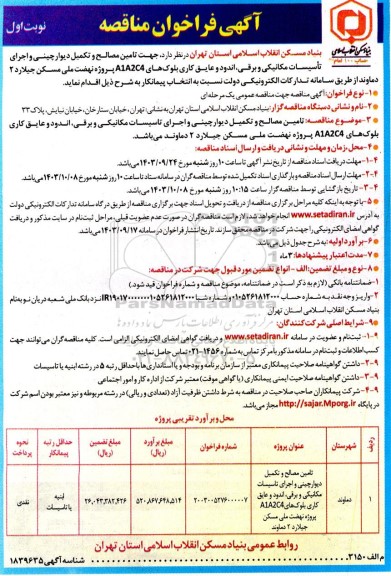 آگهی فراخوان مناقصه
نوبت اول
بنیاد مسکن انقلاب اسلامی استان تهران در نظر دارد، جهت تامین مصالح و تکمیل دیوارچینی و اجرای
تأسیسات مکانیکی و برقی، اندود و عایق کاری بلوک‌های A1A2C4 پروژه نهضت ملی مسکن جیلارد ۲
دماوند از طریق سامانه تدارکات الکترونیکی دولت نسبت به انتخاب پیمانکار به شرح ذیل اقدام نماید.
۱- نوع فراخوان: آگهی مناقصه جهت مناقصه عمومی یک مرحله‌ای
۲- نام و نشانی دستگاه مناقصه گزار: بنیاد مسکن انقلاب اسلامی استان تهران به نشانی: تهران، خیابان ستارخان، خیابان نیایش، پلاک ۳۳
۳- موضوع مناقصه: تامین مصالح و تکمیل دیوارچینی و اجرای تاسیسات مکانیکی و برقی، اندود و عایق کاری
بلوک‌های A1A2C4 پروژه نهضت ملی مسکن جیلارد ۲ دماوند می‌باشد.
۴- محل، زمان و مهلت و نشانی دریافت و ارسال اسناد مناقصه:
۴-۱- مهلت دریافت اسناد مناقصه از تاریخ نشر آگهی تا ساعت ۱۰ روز شنبه مورخ ۱۴۰۳/۰۹/۲۴ می‌باشد.
۴-۲- مهلت ارسال اسناد مناقصه و بارگذاری اسناد تکمیل شده توسط مناقصه گران در سامانه ستاد تا ساعت ۱۰ روز شنبه مورخ ۱۴۰۳/۱۰/۰۸ می‌باشد.
۴-۳- تاریخ بازگشایی توسط مناقصه گزار ساعت ۱۰:۱۵ روز شنبه مورخ ۱۴۰۳/۱۰/۰۸ می‌باشد.
۵- با توجه به اینکه کلیه مراحل برگزاری مناقصه از دریافت و تحویل اسناد جهت برگزاری مناقصه از طریق درگاه سامانه تدارکات الکترونیکی دولت
به آدرس www.setadiran.ir انجام خواهد شد لازم است مناقصه‌گران در صورت عدم عضویت قبلی، مراحل ثبت نام در سایت مذکور و دریافت
گواهی امضای الکترونیکی را جهت شرکت در مناقصه محقق سازند. تاریخ انتشار فراخوان در سامانه ۱۴۰۳/۰۹/۱۷ می‌باشد.
۶- برآورد اولیه: به شرح جدول ذیل می‌باشد.
۷- مدت اعتبار پیشنهادها: ۳ ماه
۸- نوع و مبلغ تضمین: الف - انواع تضمین مورد قبول جهت شرکت در مناقصه:
۱- ضمانتنامه بانکی (لازم به ذکر است در ضمانتنامه، موضوع مناقصه و شماره فراخوان قید شود.)
بنیاد مسکن انقلاب اسلامی استان تهران
۹- شرایط اصلی شرکت کنندگان:
۹-۱- ثبت‌نام و عضویت در سامانه www.setadiran.ir و دریافت گواهی امضای الکترونیکی الزامی است. کلیه مناقصه گران می‌توانند جهت
کسب اطلاعات و ثبت‌نام در سامانه مذکور با مرکز تماس به شماره ۱۴۵۶-۰۲۱ تماس حاصل نمایند.
۹-۲- داشتن گواهینامه صلاحیت پیمانکاری معتبر از سازمان برنامه و بودجه و یا استانداری‌ها با حداقل رتبه ۵ در رشته ابنیه یا تاسیسات
۹-۳- داشتن گواهینامه صلاحیت ایمنی پیمانکاری (یا گواهی موقت) معتبر شرکت از اداره کار و امور اجتماعی
۹-۴- شرکت پیمانکاران صاحب صلاحیت در مناقصه به شرط داشتن ظرفیت آزاد (تعدادی و ریالی) در رشته مربوطه و نیز معتبر بودن اسم شرکت
در پایگاه http://sajar.Mporg.ir مجاز می‌باشد.
محل و برآورد تقریبی پروژه
ردیف شهرستان عنوان پروژه شماره فراخوان مبلغ برآورد (ریال) مبلغ تضمین (ریال) حداقل رتبه پیمانکار نحوه پرداخت
۱ دماوند تامین مصالح و تکمیل دیوارچینی و اجرای تاسیسات مکانیکی و برقی، اندود و عایق کاری بلوک‌های A1A2C4 پروژه نهضت ملی مسکن جیلارد ۲ دماوند ۲۰۰۳۰۰۵۲۷۶۰۰۰۰۰۷ ۵۲۰,۸۶۷,۶۴۸,۵۱۴ ۲۶,۰۴۳,۳۸۲,۴۲۶ ابنیه یا تاسیسات نقدی
روابط عمومی بنیاد مسکن انقلاب اسلامی استان تهران
م الف ۳۱۵۰
شناسه آگهی ۱۸۳۹۶۳۵